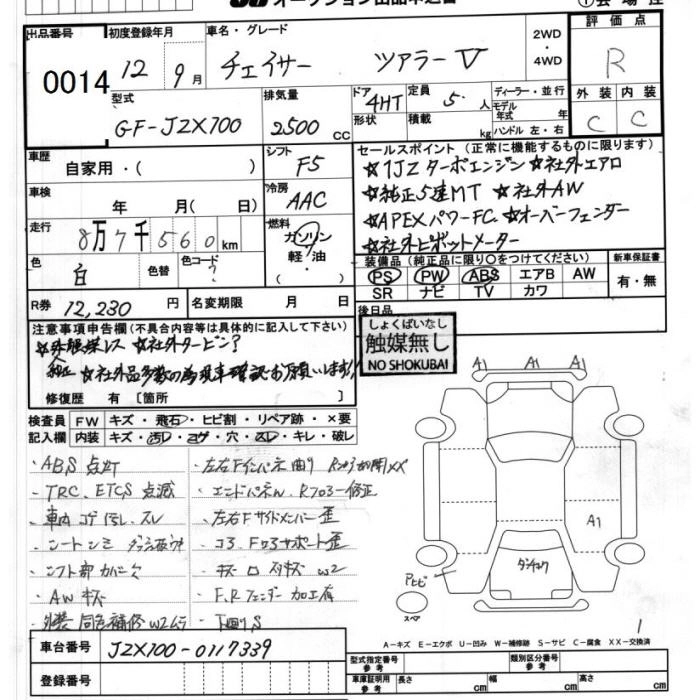 出品番号 初度登録年月 車名・グレード 2WD・4WD 評価点
0014 12年 9月 チェイサー ツアラーV R
型式 排気量 ドア形状 定員 ディーラー・並行 外装 内装
GF-JZX100 2500cc 4HT 5人 モデル年式 年 C C
積載 kg ハンドル 左・右
車歴 自家用・( ) シフト F5
セールスポイント(正常に機能するものに限ります)
☆1JZターボエンジン ☆社外エアロ
車検 年 月( 日) 冷房 AAC
☆純正5速MT ☆社外AW
☆APEXパワーFC ☆オーバーフェンダー
走行 8万7千560km 燃料 ガソリン 軽油 ( )
☆社外ピボットメーター
装備品(純正品に限り○をつけてください) 新車保証書
色 白 色替 色コード ?
PS PW ABS エアB AW 有・無
SR ナビ TV カワ
R券 12,230円 名変期限 月 日
後日品
注意事項申告欄(不具合内容等は具体的に記入して下さい)
しょくばいなし
☆触媒レス ☆社外タービン?
触媒無し
NO SHOKUBAI
☆社外品多数の為現車確認お願いします!!
修復歴 有 [箇所
A1 A1 A1
検査員記入欄 FW キズ・飛石・ヒビ割・リペア跡・×要
内装 キズ・汚レ・コゲ・穴・スレ・キレ・破レ
・ABS点灯
・TRC、ETCS点滅
・車内コゲ汚レ、スレ
・シートシミ
・シフト部カバー欠
・AWキズ
・外装同色補修W2ムラ
・左右Fインパネ曲り
・エンドパネル、Rフロアー修正
・左右Fサイドメンバー歪
・コアサポート歪
・F、Rフェンダー加工有
・下廻りS
A1
Pヒビ
スペア
1
A-キズ E-エクボ U-凹み W-補修跡 S-サビ C-腐食 XX-交換済
車台番号 JZX100-0117339
型式指定番号 参考 類別区分番号 参考
登録番号
車庫証明用 参考 長さ cm 幅 cm 高さ cm